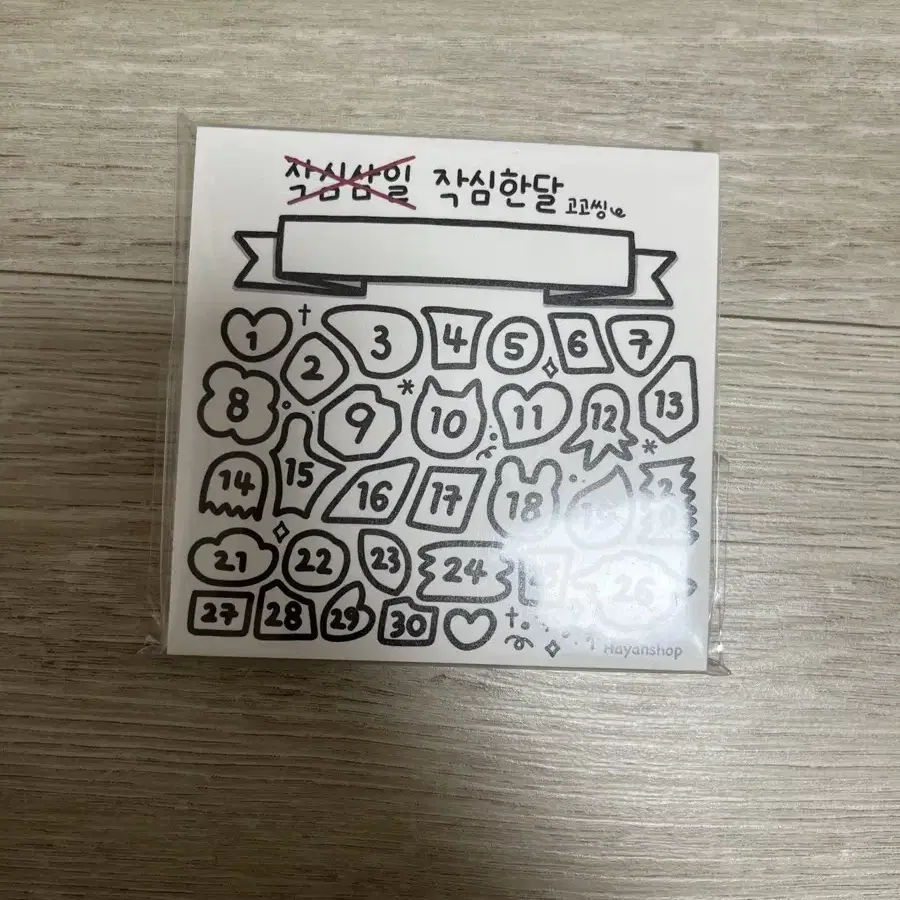 작심삼일 작심한달 고고씽
1 2 3 4 5 6 7
8 9 10 11 12 13
14 15 16 17 18
21 22 23 24 26
27 28 29 30
Hayanshop